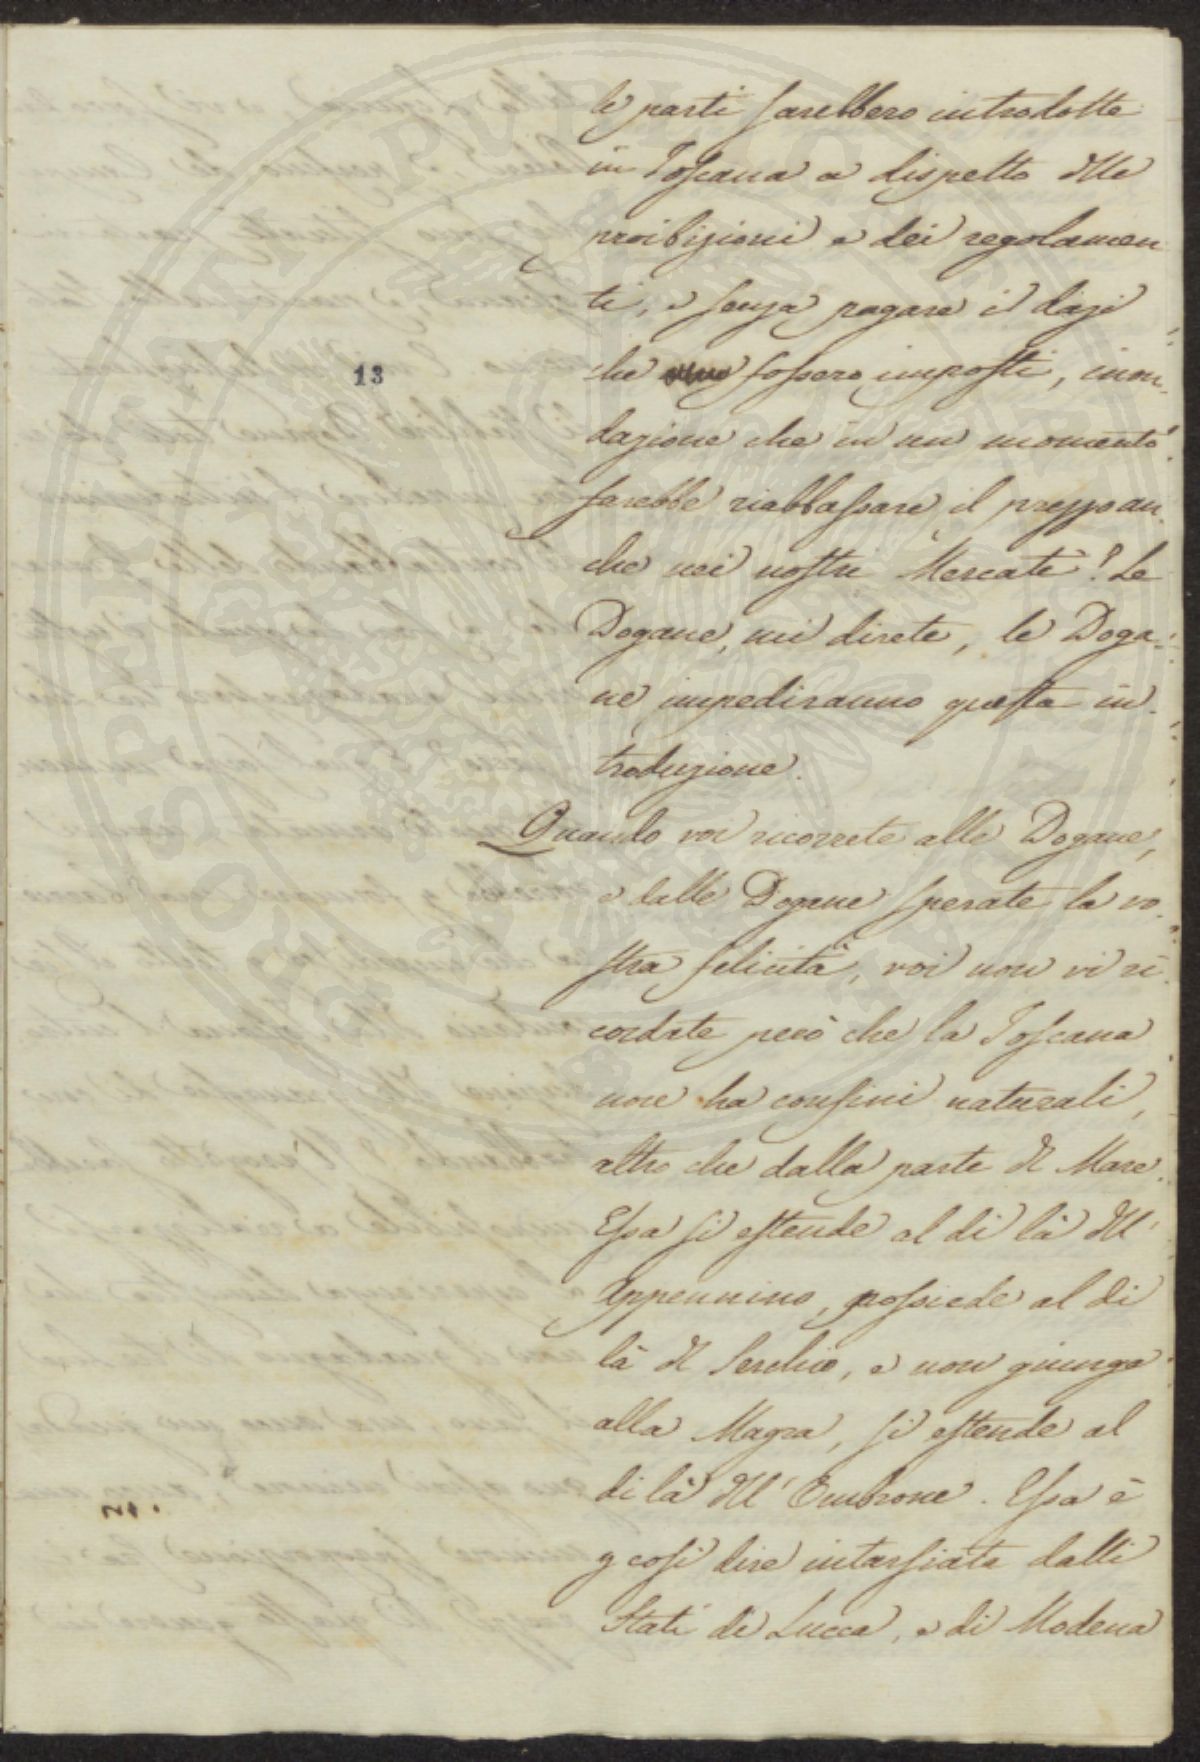 le parti sarebbero introdotte
in Toscana a dispetto delle
proibizioni e dei regolamen
ti, e senza pagare i dazi
che fossero imposti, inon-
13
dazione che in un momento
farebbe riabbassare il prezzo an-
che nei nostri Mercati! Le
Dogane, mi direte, le Doga-
ne impediranno questa in-
troduzione.
Quando voi ricorrete alle Dogane,
e dalle Dogane sperate la vo-
stra felicità, voi non vi ri-
cordate però che la Toscana
non ha confini naturali,
altro che dalla parte del Mare.
Essa si estende al di là dell'
Appennino, possiede al di
là del Serchio, e non giunge
alla Magra, si estende al
di là dell'Ombrone. Essa è
p così dire intarsiata dalli
Stati di Lucca, e di Modena